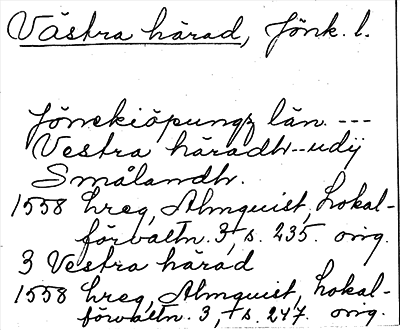 Västra härad, Jönk. l.
Jönekiöpungz län ---
Vestra häradh--udij
Smålandh.
1558 hreg, Almquist, Lokal-
förvaltn. 3, s. 235. orig.
3 Vestra härad
1558 hreg, Almquist, Lokal-
förvaltn. 3, s. 247. orig.